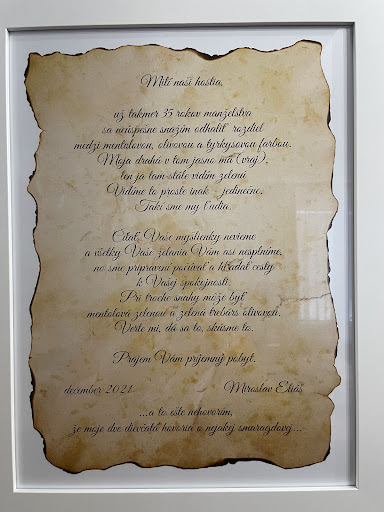 Milí naši hostia,
už takmer 35 rokov manželstva
sa neúspešne snažím odhaliť rozdiel
medzi mentolovou, olivovou a tyrkysovou farbou.
Moja drahá v tom jasno má (vraj),
len ja tam stále vidím zelenú.
Vidíme to proste inak - jedinečne.
Takí sme my ľudia.
Čítať Vaše myslienky nevieme
a všetky Vaše želania Vám asi nesplníme,
no sme pripravení počúvať a hľadať cesty
k Vašej spokojnosti.
Pri troche snahy môže byť
mentolová zelenou a zelená trebárs olivovou.
Verte mi, dá sa to, skúsme to.
Prajem Vám príjemný pobyt.
december 2021 Miroslav Eliáš
...a to ešte nehovorím,
že moje dve dievčatá hovoria o nejakej smaragdovej...